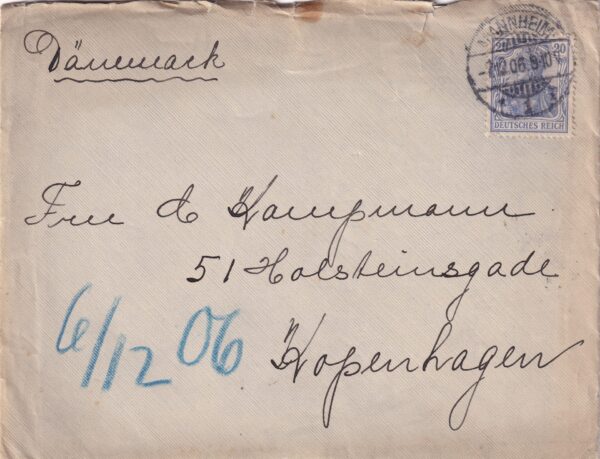 Dänemack
MANNHEIM
20 20
-7.12.06.9-10V
* 1 *
DEUTSCHES REICH
Frue d Kampmann
51 Holsteinsgade
6/12 06
Kopenhagen